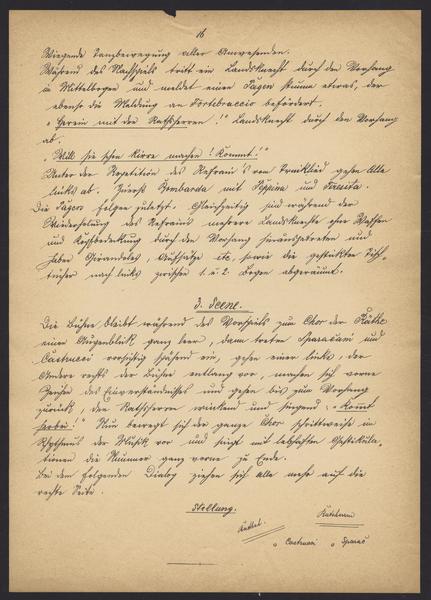 16
Wiegende Tanzbewegung aller Anwesenden.
Während des Nachspiels tritt ein Landsknecht durch den Vorhang
im Mittelbogen und meldet einen Pagen stumm etwas, der
ebenso die Meldung an Fortebraccio befördert.
"Herein mit den Rathsherren!" Landsknecht durch den Vorhang
ab.
"Will sie schon kirre machen! Kommt!"
Unter der Repetition des Refrains vom Trinklied gehen Alle
links ab. Zuerst Bombarda mit Peppina und Tressita.
Die Pagen folgen zuletzt. Gleichzeitig sind während der
Wiederholung des Refrains mehrere Landsknechte ohne Waffen
und Kopfbedeckung durch den Vorhang hereingetreten und
haben Girandoles, Aufsätze etc, sowie die gestickten Tisch-
tücher nach links zwischen 1. u 2. Bogen abgeräumt.
3. Scene.
Die Bühne bleibt während des Vorspiels zum Chor der Räthe
einen Augenblick ganz leer, dann treten Sparacani und
Castrucci vorsichtig spähend ein, gehen einer links, der
Andere rechts der Bühne entlang vor, machen sich vorne
Zeichen des Einverständnisses und gehen bis zum Vorhang
zurück, den Rathsherren winkend und singend, "Kommt
herbei!" Nun bewegt sich der ganze Chor schrittweise im
Rhythmus der Musik vor und singt mit lebhaften Gestikula-
tionen die Nummer ganz vorne zu Ende.
Bei dem folgenden Dialog ziehen sich alle mehr auf die
rechte Seite.
Stellung.
Castrucci Sparac